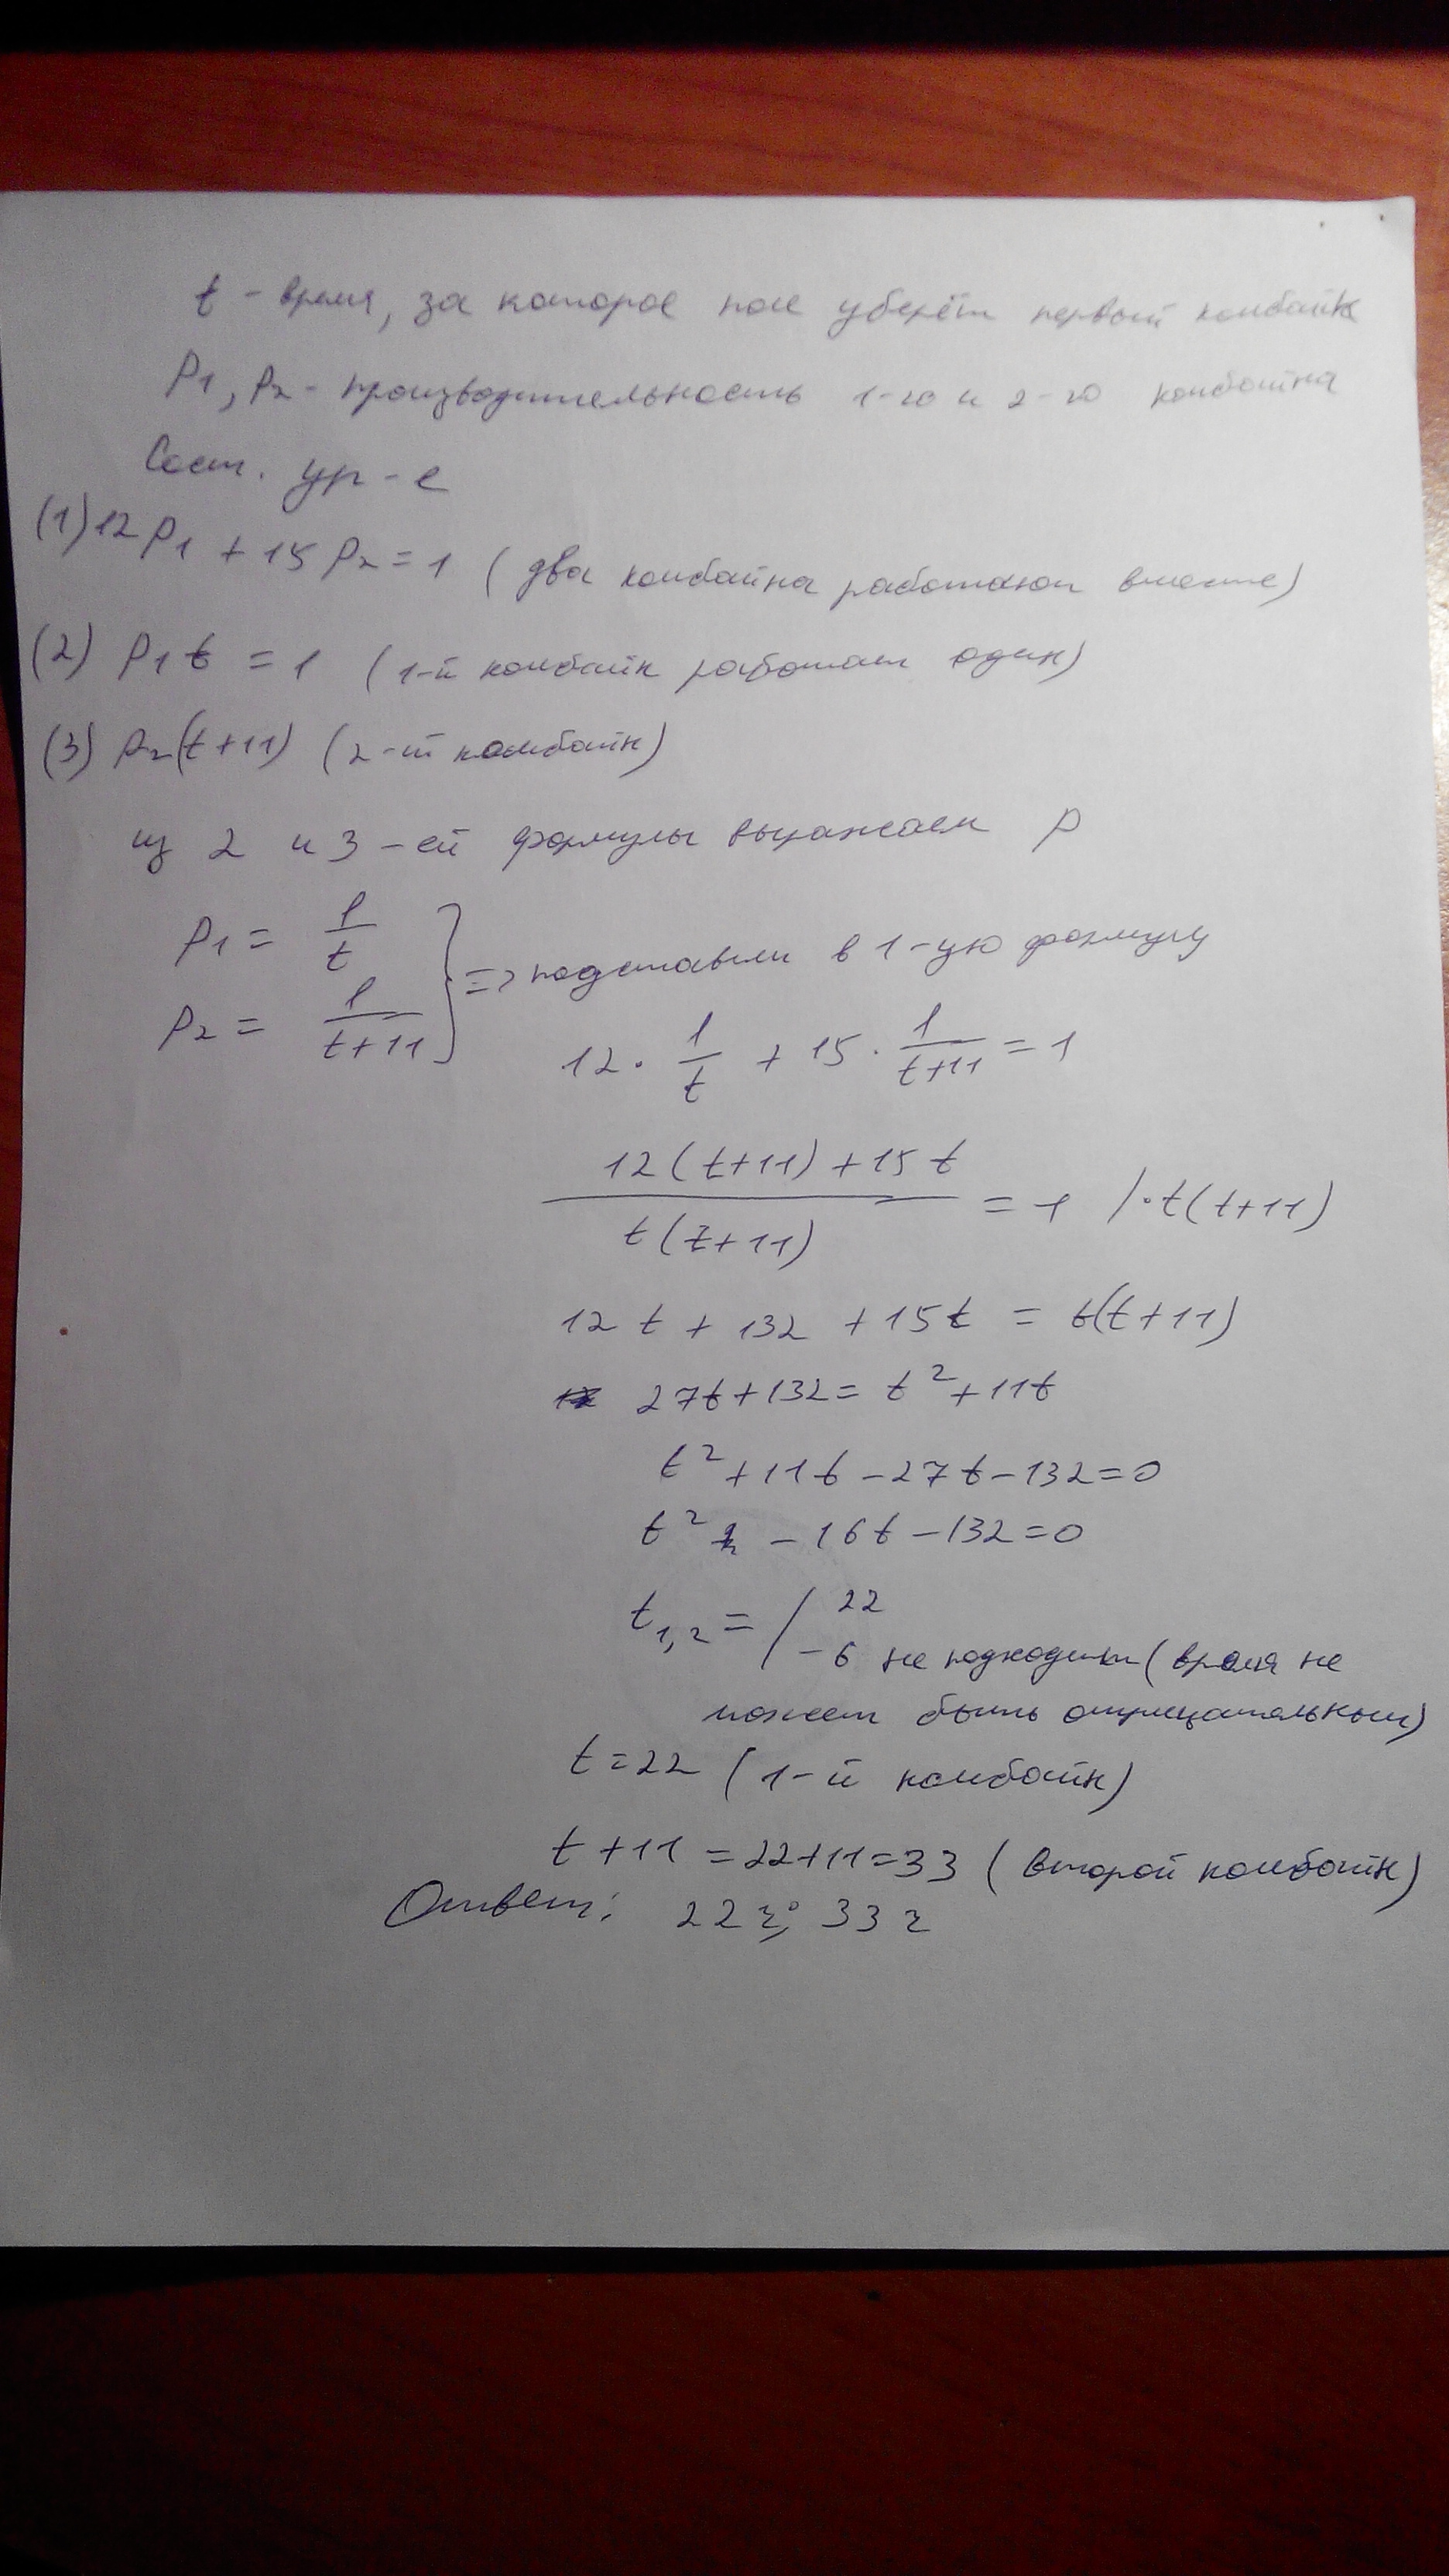 t - время, за которое поле уберёт первый комбайн
P1, P2 - производительность 1-го и 2-го комбайна
Сост. ур-е
(1) 12P1 + 15P2 = 1 (два комбайна работают вместе)
(2) P1t = 1 (1-й комбайн работает один)
(3) P2(t+11) (2-й комбайн)
из 2 и 3-ей формулы выражаем P
P1 = 1/t
P2 = 1/(t+11) } => подставим в 1-ую формулу
12 · 1/t + 15 · 1/(t+11) = 1
(12(t+11)+15t)/(t(t+11)) = 1 /·t(t+11)
12t + 132 + 15t = t(t+11)
27t+132 = t²+11t
t²+11t-27t-132=0
t² -16t-132=0
t1,2 = / 22
-6 не подходит (время не
может быть отрицательным)
t=22 (1-й комбайн)
t+11 = 22+11=33 (второй комбайн)
Ответ: 22 ч; 33 ч